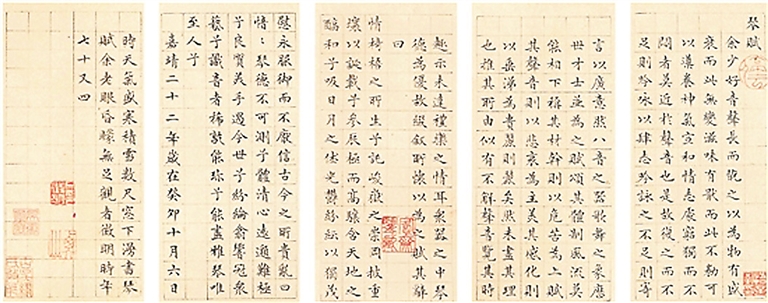 琴賦
余少好音聲長而翫之以為物有盛
衰而此無變滋味有猒而此不勌可
以導養神氣宣和情志處窮獨而不
悶者莫近於音聲也是故復之而不
足則吟詠以肆志吟詠之不足則寄
言以廣意然八音之器歌舞之象歷
世才士並為之賦頌其體制風流莫
能相下稱其材幹則以危苦為上賦
其聲音則以悲哀為主美其感化則
以垂涕為貴麗則麗矣然未盡其理
也推其所由似有不解音聲覽其時
趣亦未達禮樂之情耳衆器之中琴
德為優故綴叙所懷以為之賦其辭
曰
惟椅梧之所生兮託峻嶽之崇岡披重
壤以誕載兮參辰極而高驤含天地之
醇和兮吸日月之休光鬱紛紜以獨茂
慰永服御而不猒信古今之所貴亂曰
愔〻琴德不可測兮體清心遠邈難極
兮良質美手遇今世兮紛綸翕響冠衆
藝兮識音者稀孰能珍兮能盡雅琴唯
至人兮
嘉靖二十二年歲在癸卯十月六日
時天氣盛寒積雪數尺窓下漫書琴
賦余老眼昏矇無足觀者徵明時年
七十又四